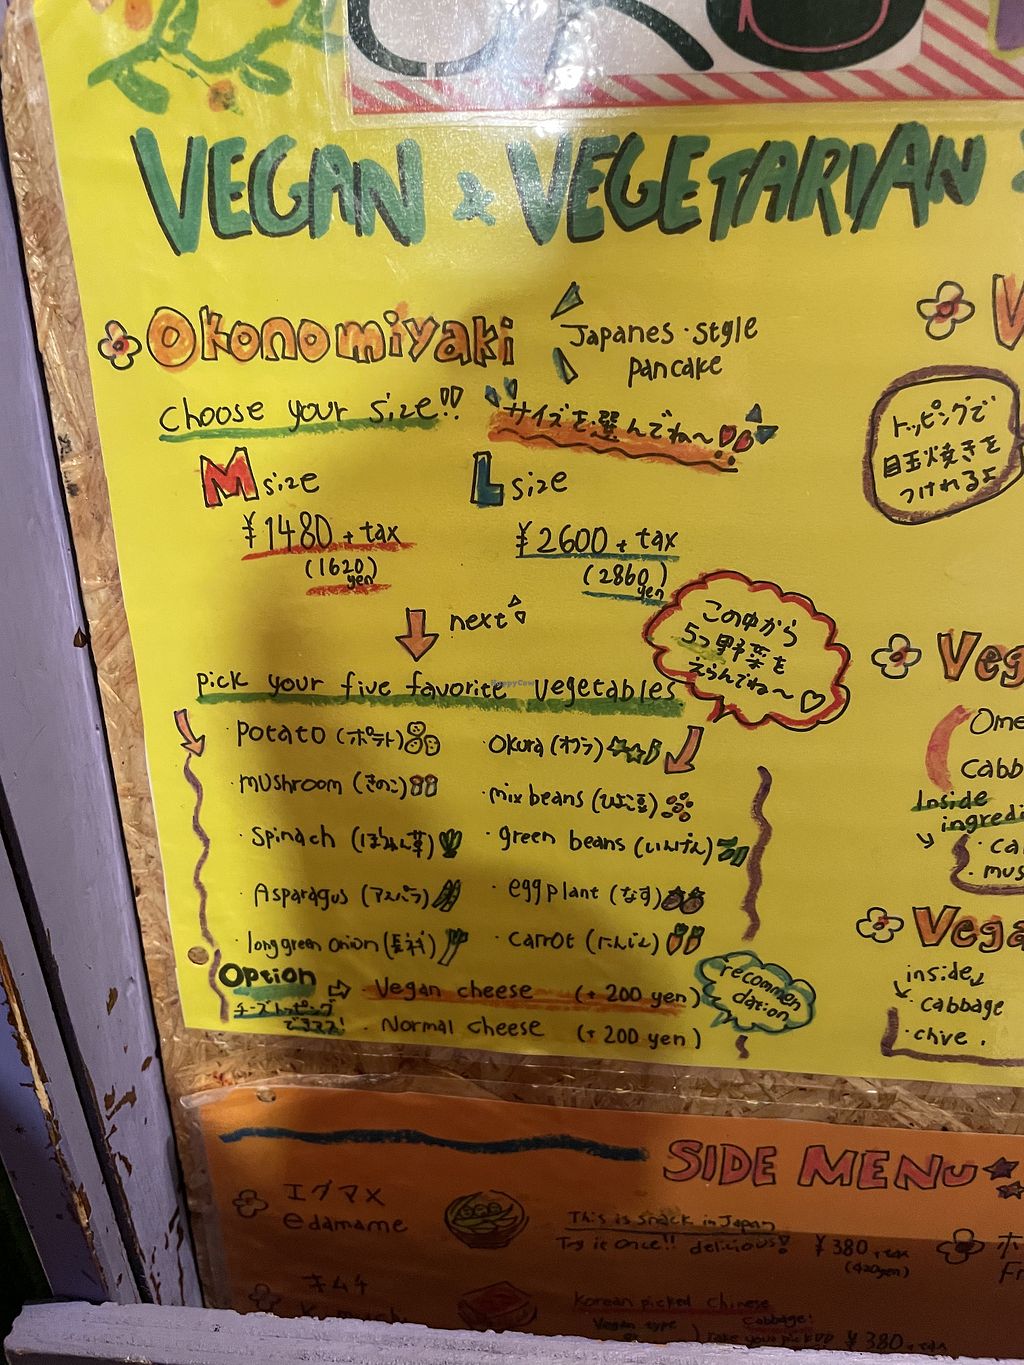 VEGAN & VEGETARIAN
Okonomiyaki
Japanes・style
pancake
choose your size!!
サイズを選んでね〜
M size
L size
¥1480 + tax
(1620)
yen
¥2600 + tax
(2860)
yen
next
この中から
5つ野菜を
えらんでね〜
pick your five favorite vegetables
・potato (ポテト)
・okura (オクラ)
・mushroom (きのこ)
・mix beans (ひよこ豆)
・spinach (ほうれん草)
・green beans (いんげん)
・Asparagus (アスパラ)
・eggplant (なす)
・long green onion (長ネギ)
・carrot (にんじん)
Option
チーズトッピング
・Vegan cheese (+200 yen)
recommen
dation
・Normal cheese (+200 yen)
トッピングで
目玉焼きを
つけれるよ
Veg
Ome
cabb
Inside
ingredi
・ca
・mus
Vega
inside
・cabbage
・chive.
SIDE MENU
エダマメ
edamame
This is snack in Japan
Try it once!! delicious!
¥380 + tax
(420yen)
キムチ
Korean picked Chinese
cabbage!
Vegan type
take your pick
¥380 + tax